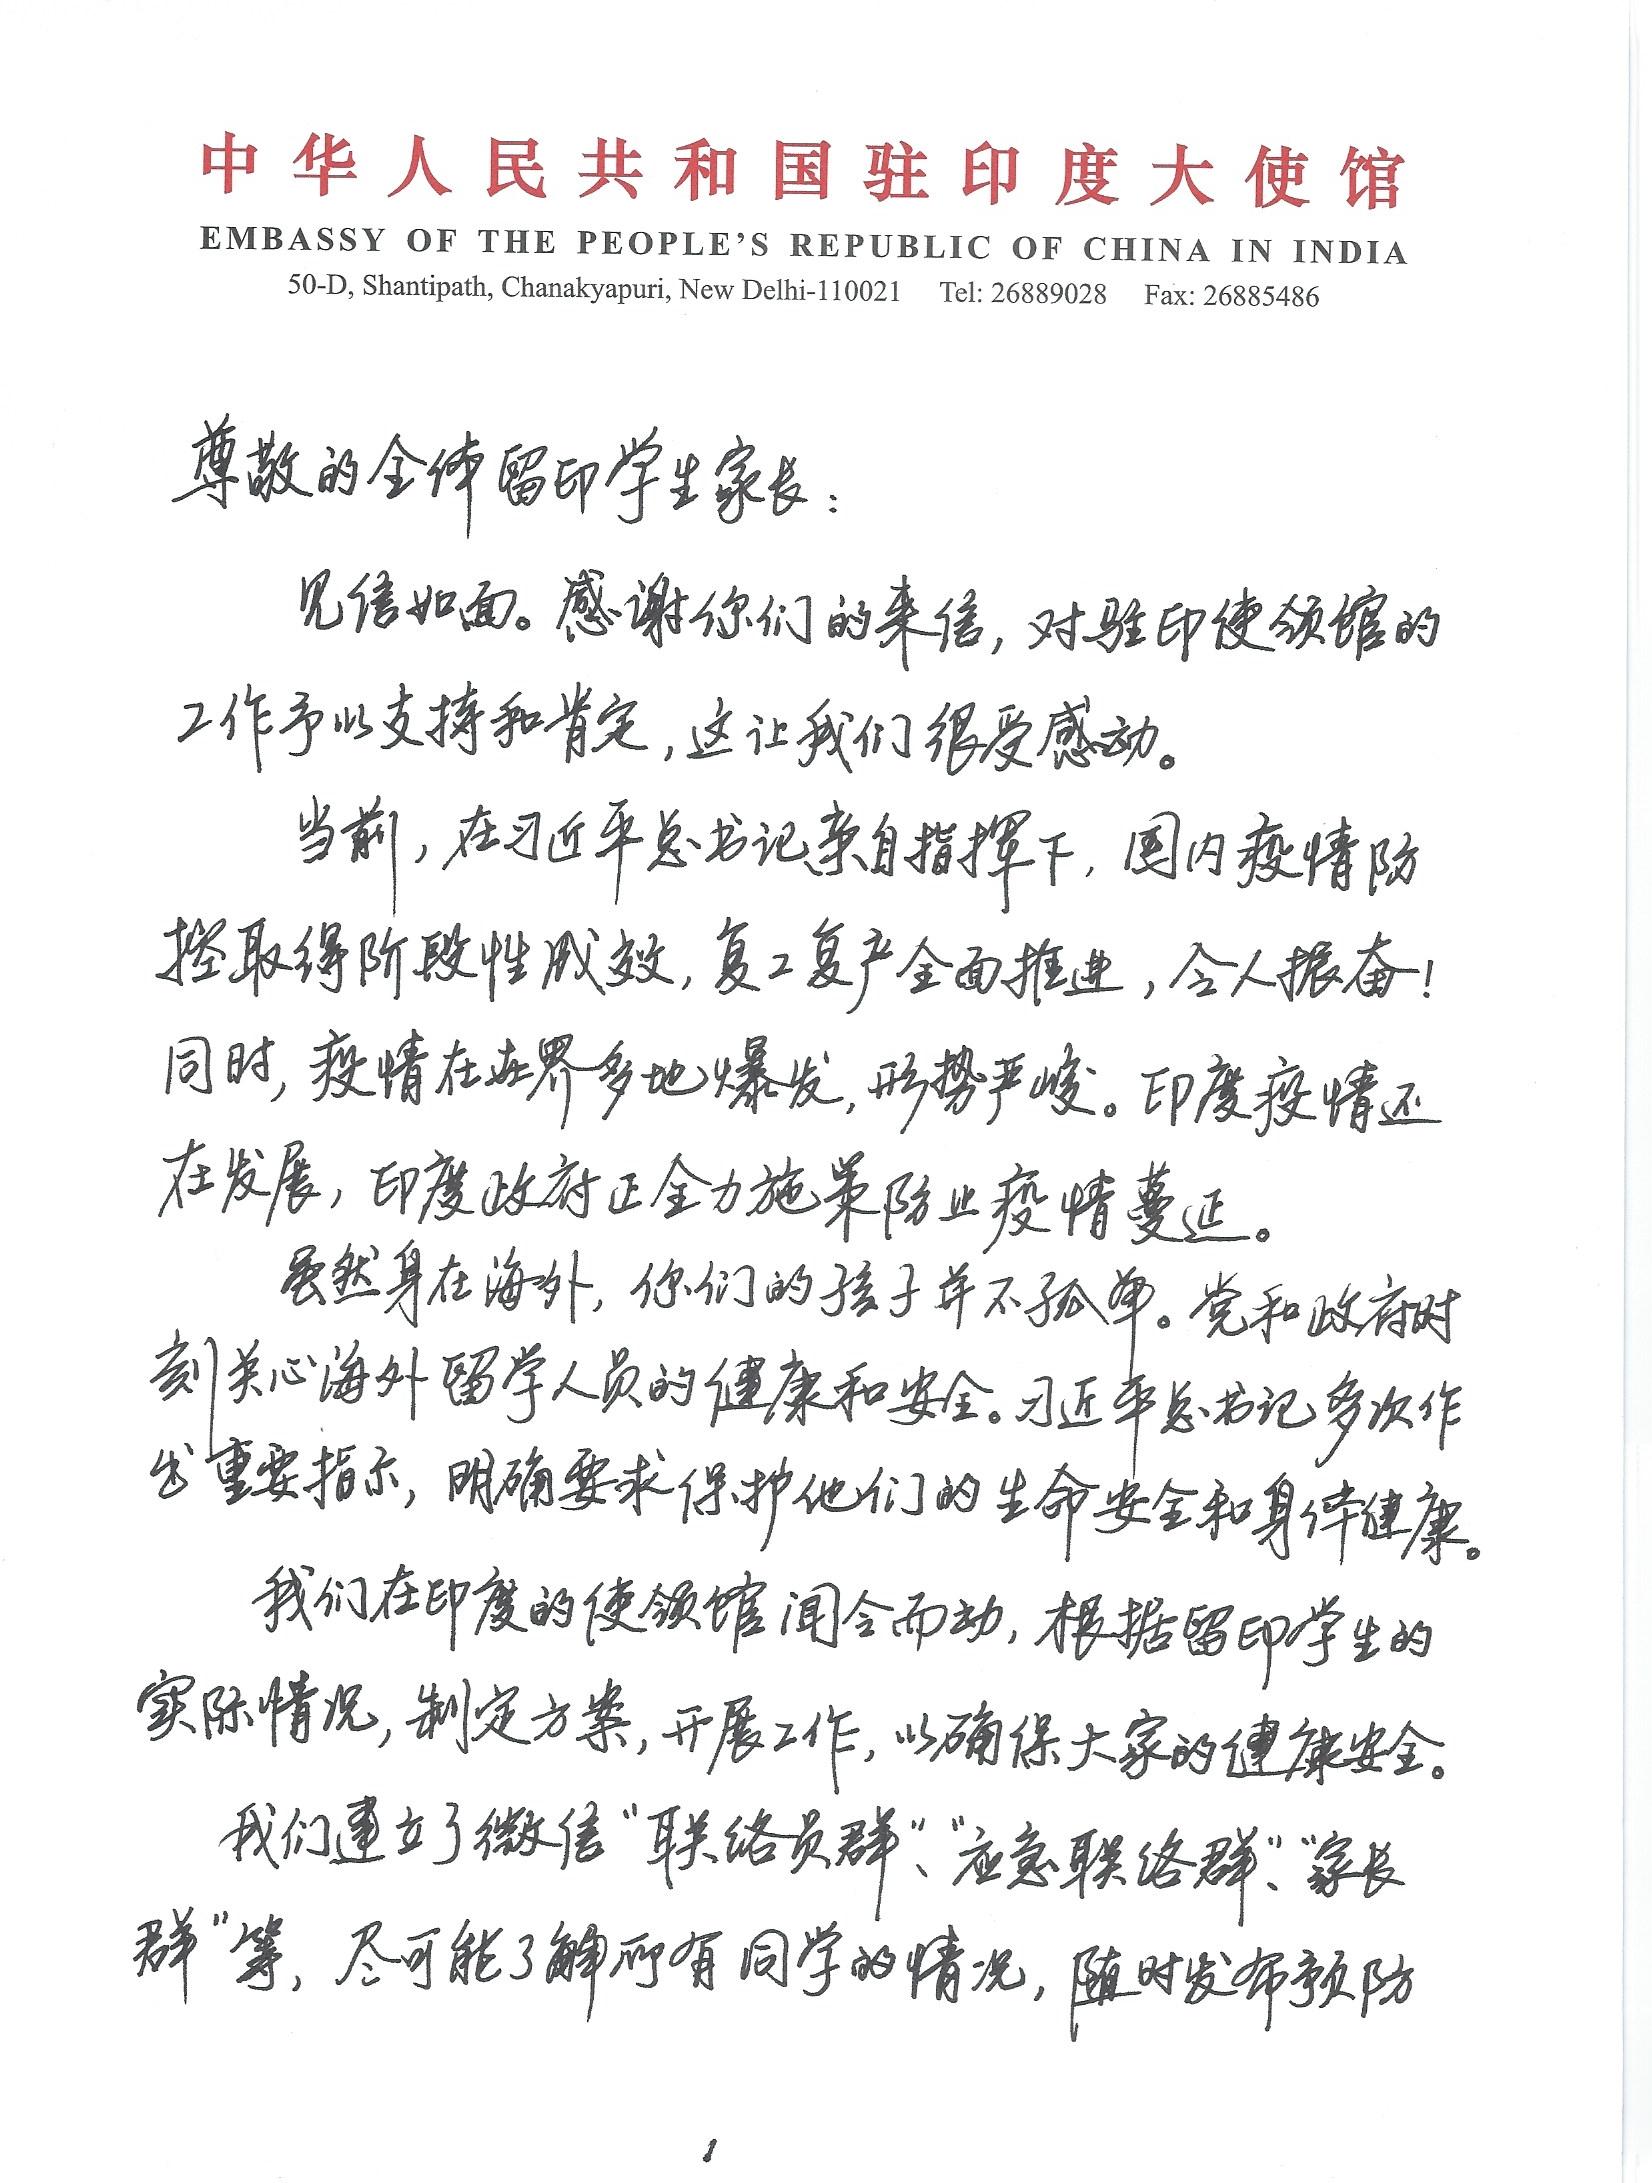 中华人民共和国驻印度大使馆
EMBASSY OF THE PEOPLE'S REPUBLIC OF CHINA IN INDIA
50-D, Shantipath, Chanakyapuri, New Delhi-110021 Tel: 26889028 Fax: 26885486
尊敬的全体留印学生家长：
见信如面。感谢你们的来信，对驻印使领馆的
工作予以支持和肯定，这让我们很受感动。
当前，在习近平总书记亲自指挥下，国内疫情防
控取得阶段性成效，复工复产全面推进，令人振奋！
同时，疫情在世界多地爆发，形势严峻。印度疫情还
在发展，印度政府正全力施策防止疫情蔓延。
虽然身在海外，你们的孩子并不孤单。党和政府时
刻关心海外留学人员的健康和安全。习近平总书记多次作
出重要指示，明确要求保护他们的生命安全和身体健康。
我们在印度的使领馆闻令而动，根据留印学生的
实际情况，制定方案，开展工作，以确保大家的健康安全。
我们建立了微信“联络员群”、“应急联络群”、“家长
群”等，尽可能了解所有同学的情况，随时发布预防
1